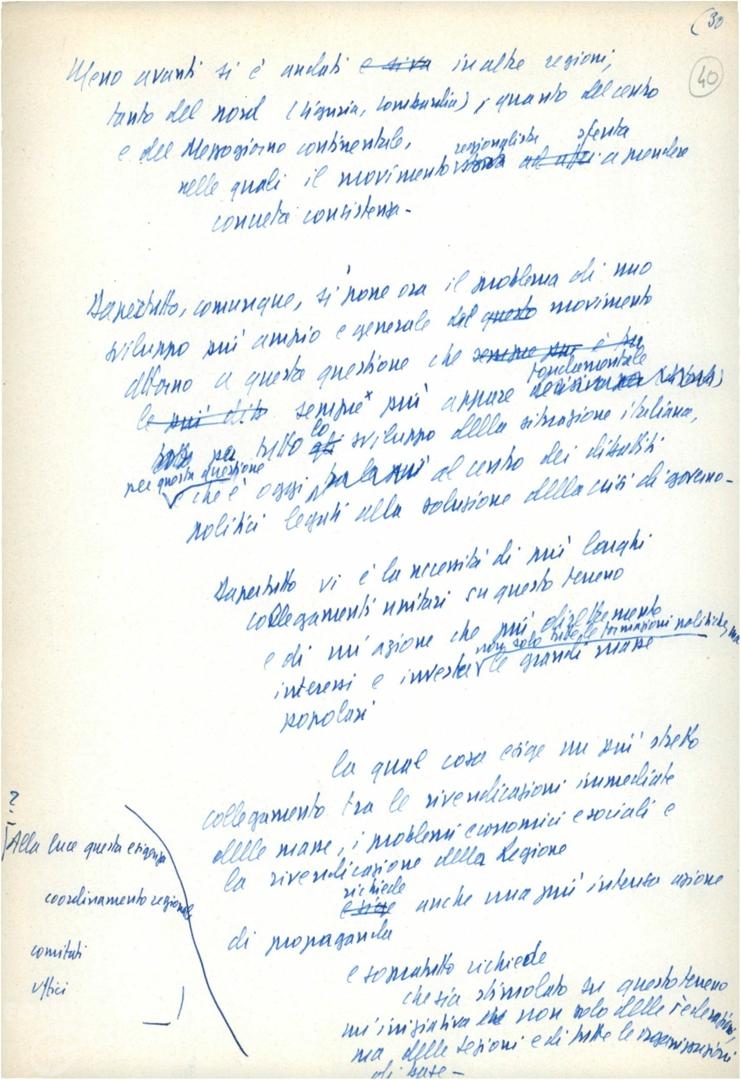 (30
40
Meno avanti si è andati e si va in altre regioni,
tanto del nord (liguria, lombardia), quanto del centro
e del Mezzogiorno continentale,
regionalista stenta
nelle quali il movimento a prendere
concreta consistenza -
Dapertutto, comunque, si pone ora il problema di uno
sviluppo più ampio e generale del questo movimento
attorno a questa questione che sempre più è
fondamentale
le più di sempre più appare decisiva
per tutto lo sviluppo della situazione italiana,
per questa questione
che è oggi al centro dei dibattiti
politici legati alla soluzione della crisi di governo -
Dapertutto vi è la necessità di più larghi
collegamenti unitari su questo terreno
e di un'azione che più direttamente
non solo tutte le formazioni politiche, ma
interessi e investa le grandi masse
popolari
la qual cosa esige un più stretto
collegamento tra le rivendicazioni immediate
delle masse, i problemi economici e sociali e
la rivendicazione della Regione
richiede
esige anche una più intensa azione
di propaganda
e sopratutto richiede
che sia stimolata su questo terreno
un'iniziativa che non solo delle Federazioni,
ma delle sezioni e di tutte le organizzazioni
di base -
?
Alla luce questa esigenza
coordinamento regionale
comitati
uffici